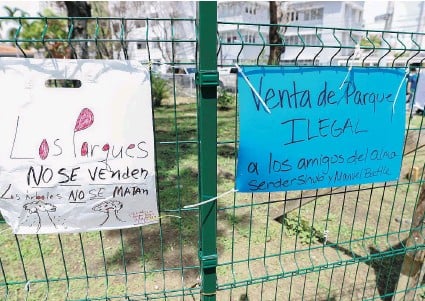 Los Parques
NO SE VENDEN
Los Arboles NO SE MATAN
Venta de Parque
ILEGAL
a los amigos del alma
y Manuel